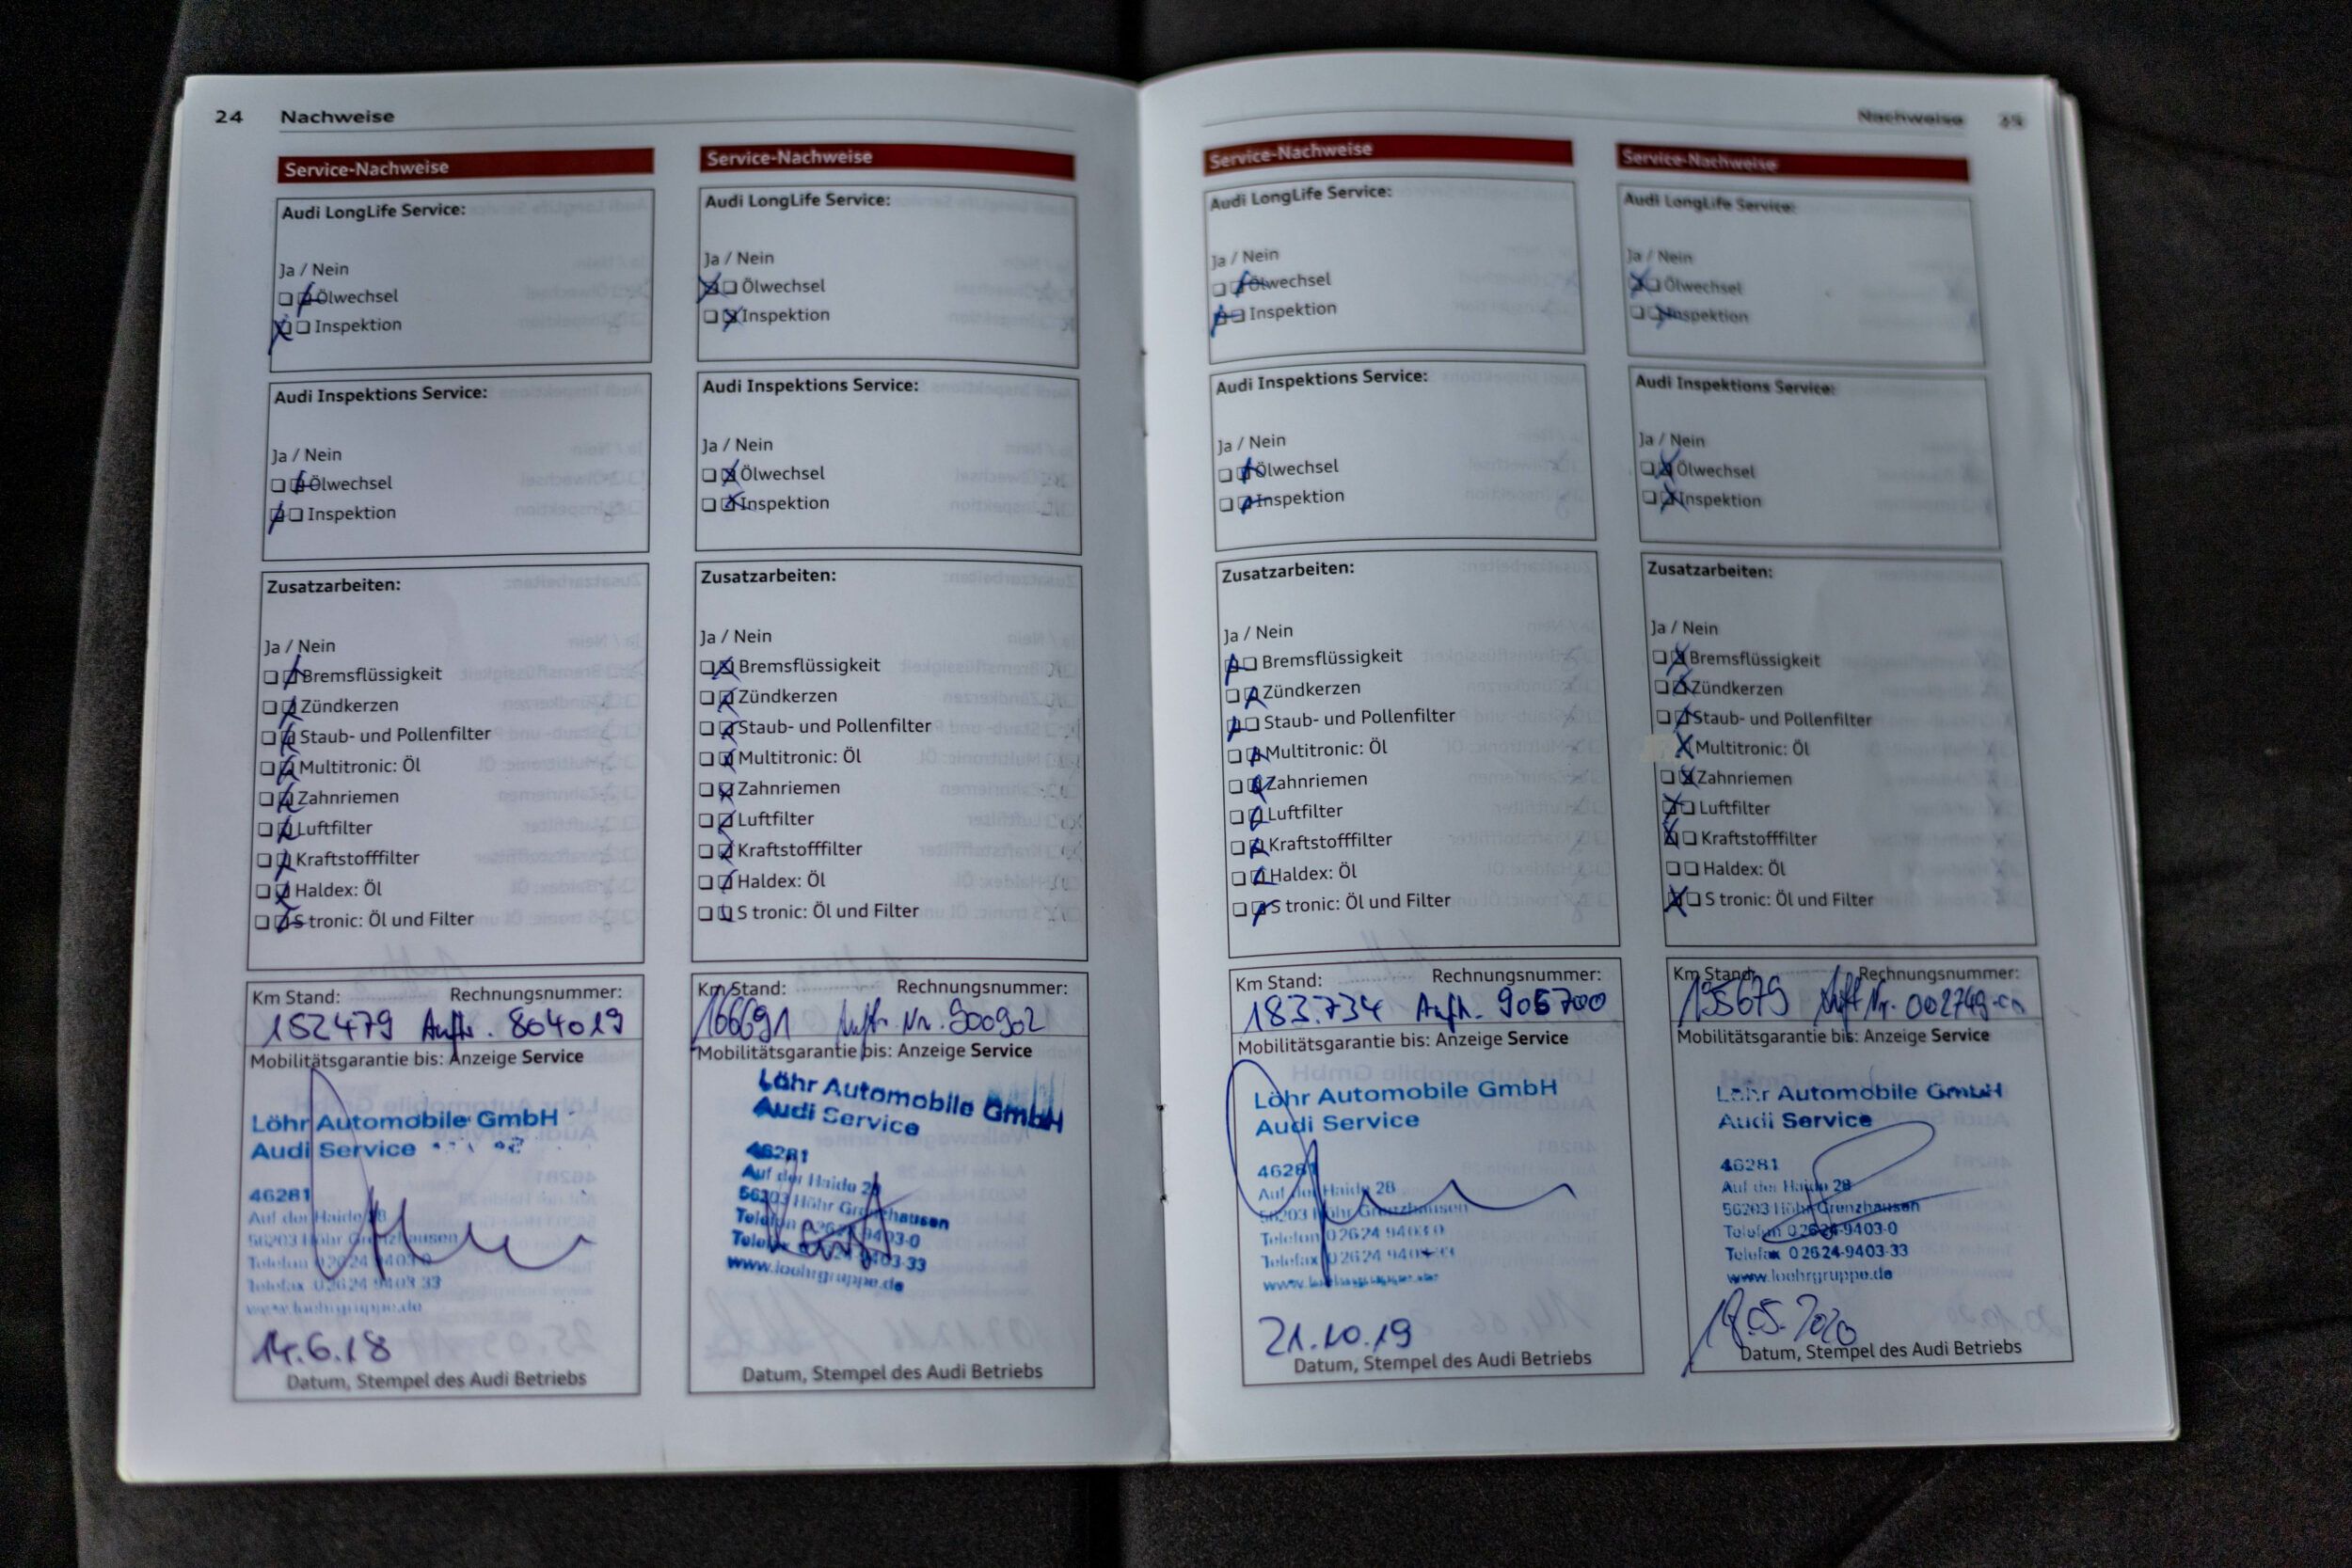 24 Nachweise
Service-Nachweise
Audi LongLife Service:
Ja / Nein
Ölwechsel
Inspektion
Audi Inspektions Service:
Ja / Nein
Ölwechsel
Inspektion
Zusatzarbeiten:
Ja / Nein
Bremsflüssigkeit
Zündkerzen
Staub- und Pollenfilter
Multitronic: Öl
Zahnriemen
Luftfilter
Kraftstofffilter
Haldex: Öl
S tronic: Öl und Filter
Km Stand: Rechnungsnummer:
152479 Auftr. 804019
Mobilitätsgarantie bis: Anzeige Service
Löhr Automobile GmbH
Audi Service
46281
Auf der Haide 28
56203 Höhr Grenzhausen
Telefon 02624 9403 0
Telefax 02624 9403 33
www.loehrgruppe.de
14.6.18
Datum, Stempel des Audi Betriebs
Service-Nachweise
Audi LongLife Service:
Ja / Nein
Ölwechsel
Inspektion
Audi Inspektions Service:
Ja / Nein
Ölwechsel
Inspektion
Zusatzarbeiten:
Ja / Nein
Bremsflüssigkeit
Zündkerzen
Staub- und Pollenfilter
Multitronic: Öl
Zahnriemen
Luftfilter
Kraftstofffilter
Haldex: Öl
S tronic: Öl und Filter
Km Stand: Rechnungsnummer:
166691 Auftr. Nr. 900902
Mobilitätsgarantie bis: Anzeige Service
Löhr Automobile GmbH
Audi Service
46281
Auf der Haide 28
56203 Höhr Grenzhausen
Telefon 02624-9403-0
Telefax 02624-9403-33
www.loehrgruppe.de
Datum, Stempel des Audi Betriebs
Nachweise
Service-Nachweise
Audi LongLife Service:
Ja / Nein
Ölwechsel
Inspektion
Audi Inspektions Service:
Ja / Nein
Ölwechsel
Inspektion
Zusatzarbeiten:
Ja / Nein
Bremsflüssigkeit
Zündkerzen
Staub- und Pollenfilter
Multitronic: Öl
Zahnriemen
Luftfilter
Kraftstofffilter
Haldex: Öl
S tronic: Öl und Filter
Km Stand: Rechnungsnummer:
183.734 Auftr. 906700
Mobilitätsgarantie bis: Anzeige Service
Löhr Automobile GmbH
Audi Service
46281
Auf der Haide 28
56203 Höhr Grenzhausen
Telefon 02624 9403 0
Telefax 02624 9403 33
www.loehrgruppe.de
21.10.19
Datum, Stempel des Audi Betriebs
Service-Nachweise
Audi LongLife Service:
Ja / Nein
Ölwechsel
Inspektion
Audi Inspektions Service:
Ja / Nein
Ölwechsel
Inspektion
Zusatzarbeiten:
Ja / Nein
Bremsflüssigkeit
Zündkerzen
Staub- und Pollenfilter
Multitronic: Öl
Zahnriemen
Luftfilter
Kraftstofffilter
Haldex: Öl
S tronic: Öl und Filter
Km Stand: Rechnungsnummer:
195679 Auftr. Nr.
Mobilitätsgarantie bis: Anzeige Service
Löhr Automobile GmbH
Audi Service
46281
Auf der Haide 28
56203 Höhr-Grenzhausen
Telefon 02624-9403-0
Telefax 02624-9403-33
www.loehrgruppe.de
Datum, Stempel des Audi Betriebs